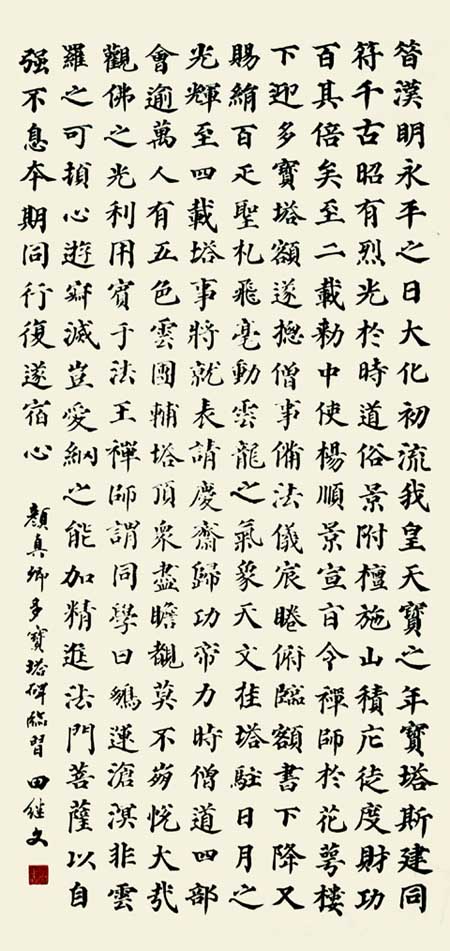 昔漢明永平之日大化初流我皇天寶之年寶塔斯建同
符千古昭有烈光於時道俗景附檀施山積庀徒度財功
百其倍矣至二載勅中使楊順景宣旨令禪師於花萼樓
下迎多寶塔額遂揔僧事備法儀宸睠俯臨額書下降又
賜絹百疋聖札飛毫動雲龍之氣象天文挂塔駐日月之
光輝至四載塔事將就表請慶齋歸功帝力時僧道四部
會逾萬人有五色雲團輔塔頂眾盡瞻覩莫不崩悅大哉
觀佛之光利用賓于法王禪師謂同學曰鵬運滄溟非雲
羅之可頓心遊寂滅豈愛網之能加精進法門菩薩以自
强不息本期同行復遂宿心
顏真卿多寶塔碑臨習 田继文